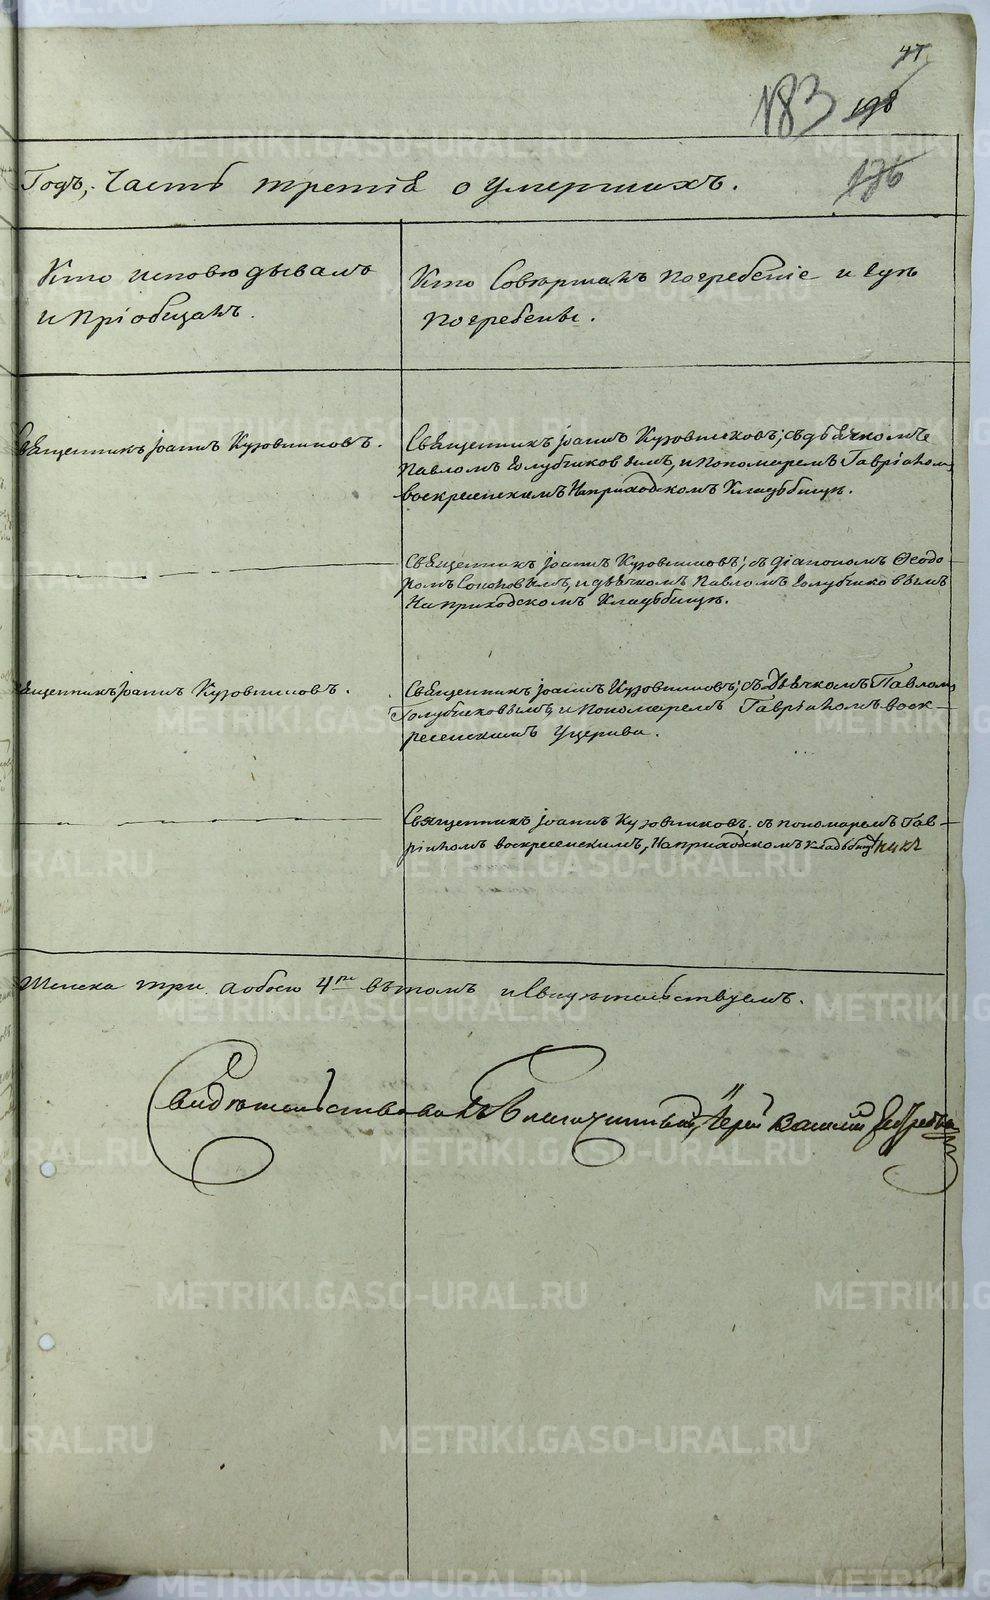 47
183 198
176
Годъ, Часть третія о умершихъ.
Кто исповѣдывалъ
и пріобщалъ.
Кто Совѣршалъ погребеніе и гдѣ
погребены.
Священникъ Іоаннъ Кузовниковъ.
Священникъ Іоаннъ Кузовниковъ; съ дьячкомъ
Павломъ Голубчиковымъ, и Пономаремъ Гавріиломъ
воскресенскимъ На приходскомъ Кладбищѣ.
Священникъ Іоаннъ Кузовниковъ; съ діакономъ Ѳеодо
ромъ и дьячкомъ Павломъ Голубчиковымъ
На приходскомъ Кладбищѣ.
Священникъ Іоаннъ Кузовниковъ.
Священникъ Іоаннъ Кузовниковъ; съ Дьячкомъ Павломъ
Голубчиковымъ, и Пономаремъ Гавріиломъ воск-
ресенскимъ У церкви.
Священникъ Іоаннъ Кузовниковъ; съ пономаремъ Гав-
ріиломъ воскресенскимъ, На приходскомъ кладбищѣ
Женска три а обоего 4ре въ томъ и Свидѣтельствуемъ.
Свидѣтельствовалъ Благочинный, Іерей Василій
METRIKI.GASO-URAL.RU